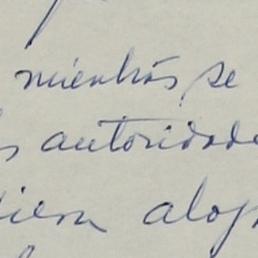 mientras se
s autoridade
diera aloj